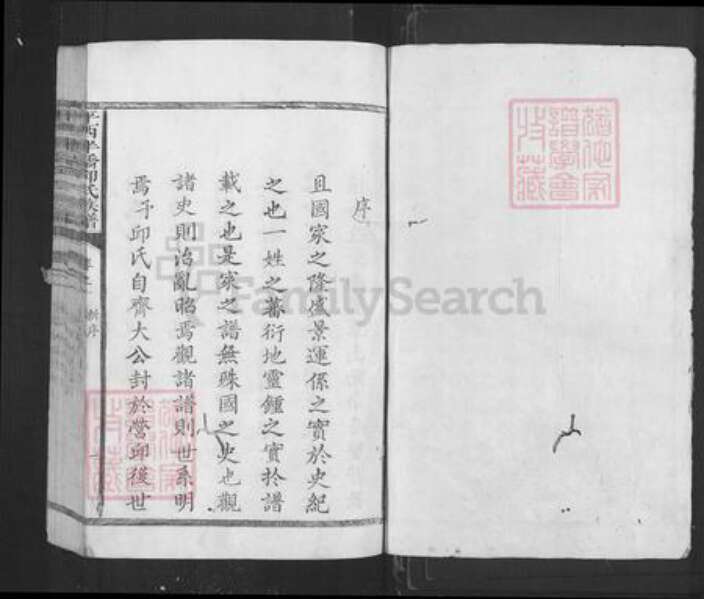 序
且國家之隆盛景運係之實於史紀
之也一姓之蕃衍地靈鍾之實於譜
載之也是家之譜無殊國之史也觀
諸史則治亂昭焉觀諸譜則世系明
焉予邱氏自齊大公封於營邱後世
邱氏族譜
新序
FamilySearch